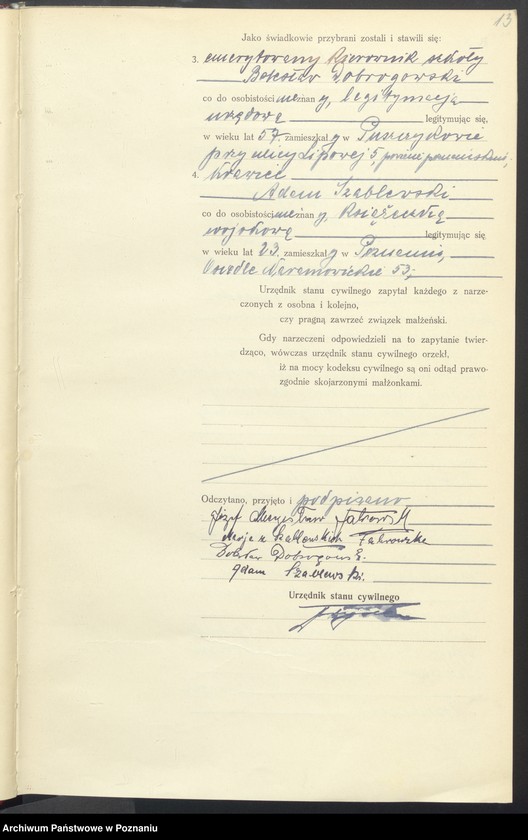 13
Jako świadkowie przybrani zostali i stawili się:
3. emerytowany kierownik szkoły
Bolesław Dobrogowski
co do osobistości nieznany, legitymacją
urzędową legitymując się,
w wieku lat 57, zamieszkały w Puszczykowie
przy ulicy Lipowej 5,
4. krawiec
Adam Szablewski
co do osobistości nieznany, Książeczką
wojskową legitymując się
w wieku lat 23, zamieszkały w Poznaniu,
Osiedle Naramowickie 53,
Urzędnik stanu cywilnego zapytał każdego z narze-
czonych z osobna i kolejno,
czy pragną zawrzeć związek małżeński.
Gdy narzeczeni odpowiedzieli na to zapytanie twier-
dząco, wówczas urzędnik stanu cywilnego orzekł,
iż na mocy kodeksu cywilnego są oni odtąd prawo-
zgodnie skojarzonymi małżonkami.
Odczytano, przyjęto i podpisano
Józef
z Szablewskich
Adam Szablewski.
Urzędnik stanu cywilnego
Archiwum Państwowe w Poznaniu